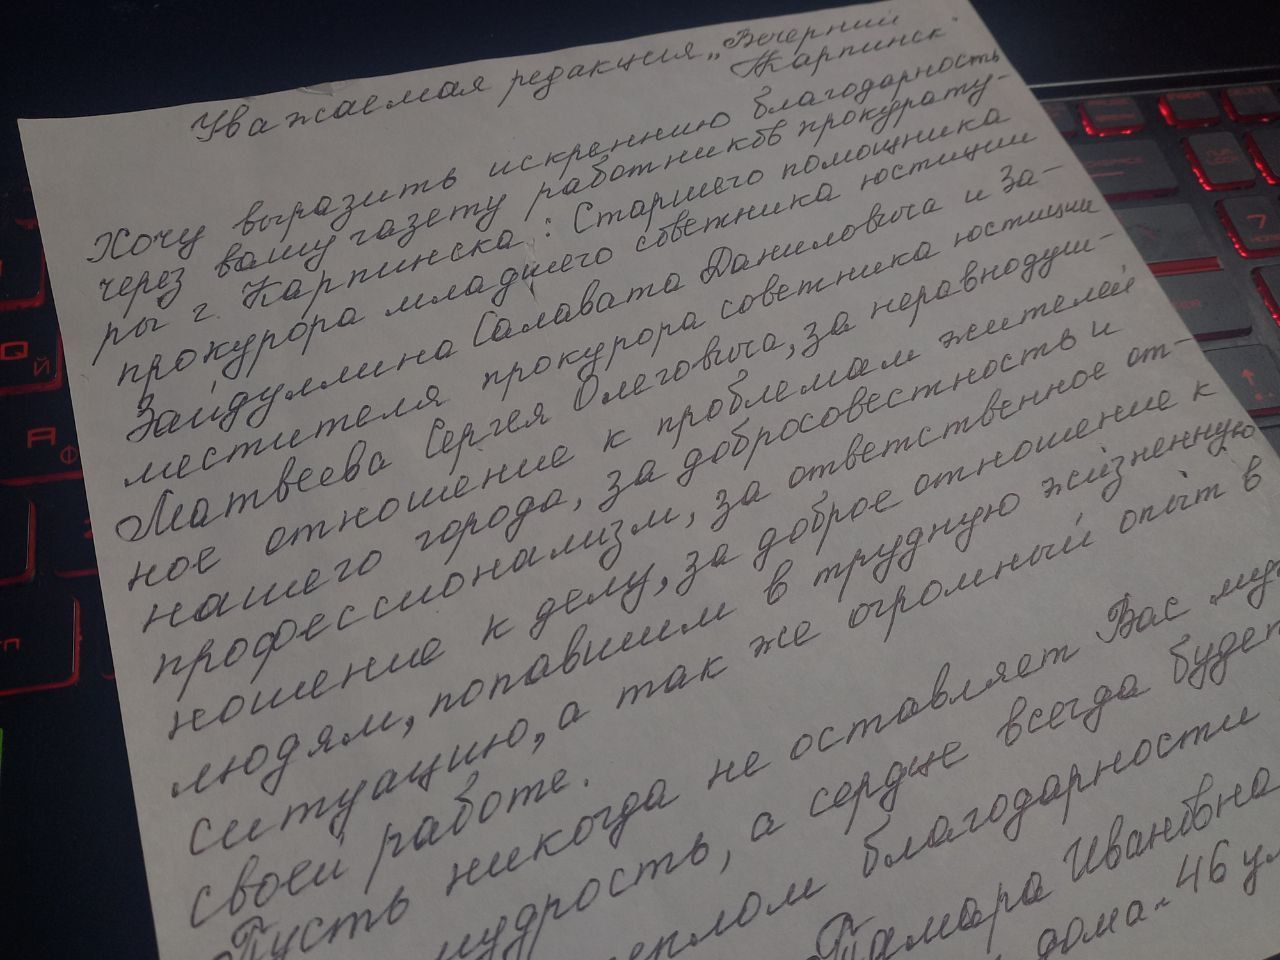 Уважаемая редакция „Вечерний
Карпинск"
Хочу выразить искреннию благодарность
через вашу газету работников прокурату-
ры г. Карпинска: Старшего помощника
прокурора младшего советника юстиции
Зайдуллина Салавата Даниловича и За-
местителя прокурора советника юстиции
Матвеева Сергея Олеговича, за неравнодуш-
ное отношение к проблемам жителей
нашего города, за добросовестность и
профессионализм, за ответственное от-
ношение к делу, за доброе отношение к
людям, попавшим в трудную жизненную
ситуацию, а так же огромный опыт в
своей работе.
Пусть никогда не оставляет Вас
мудрость, а сердце всегда будет
теплом благодарности
Тамара Ивановна
дома-46 ул